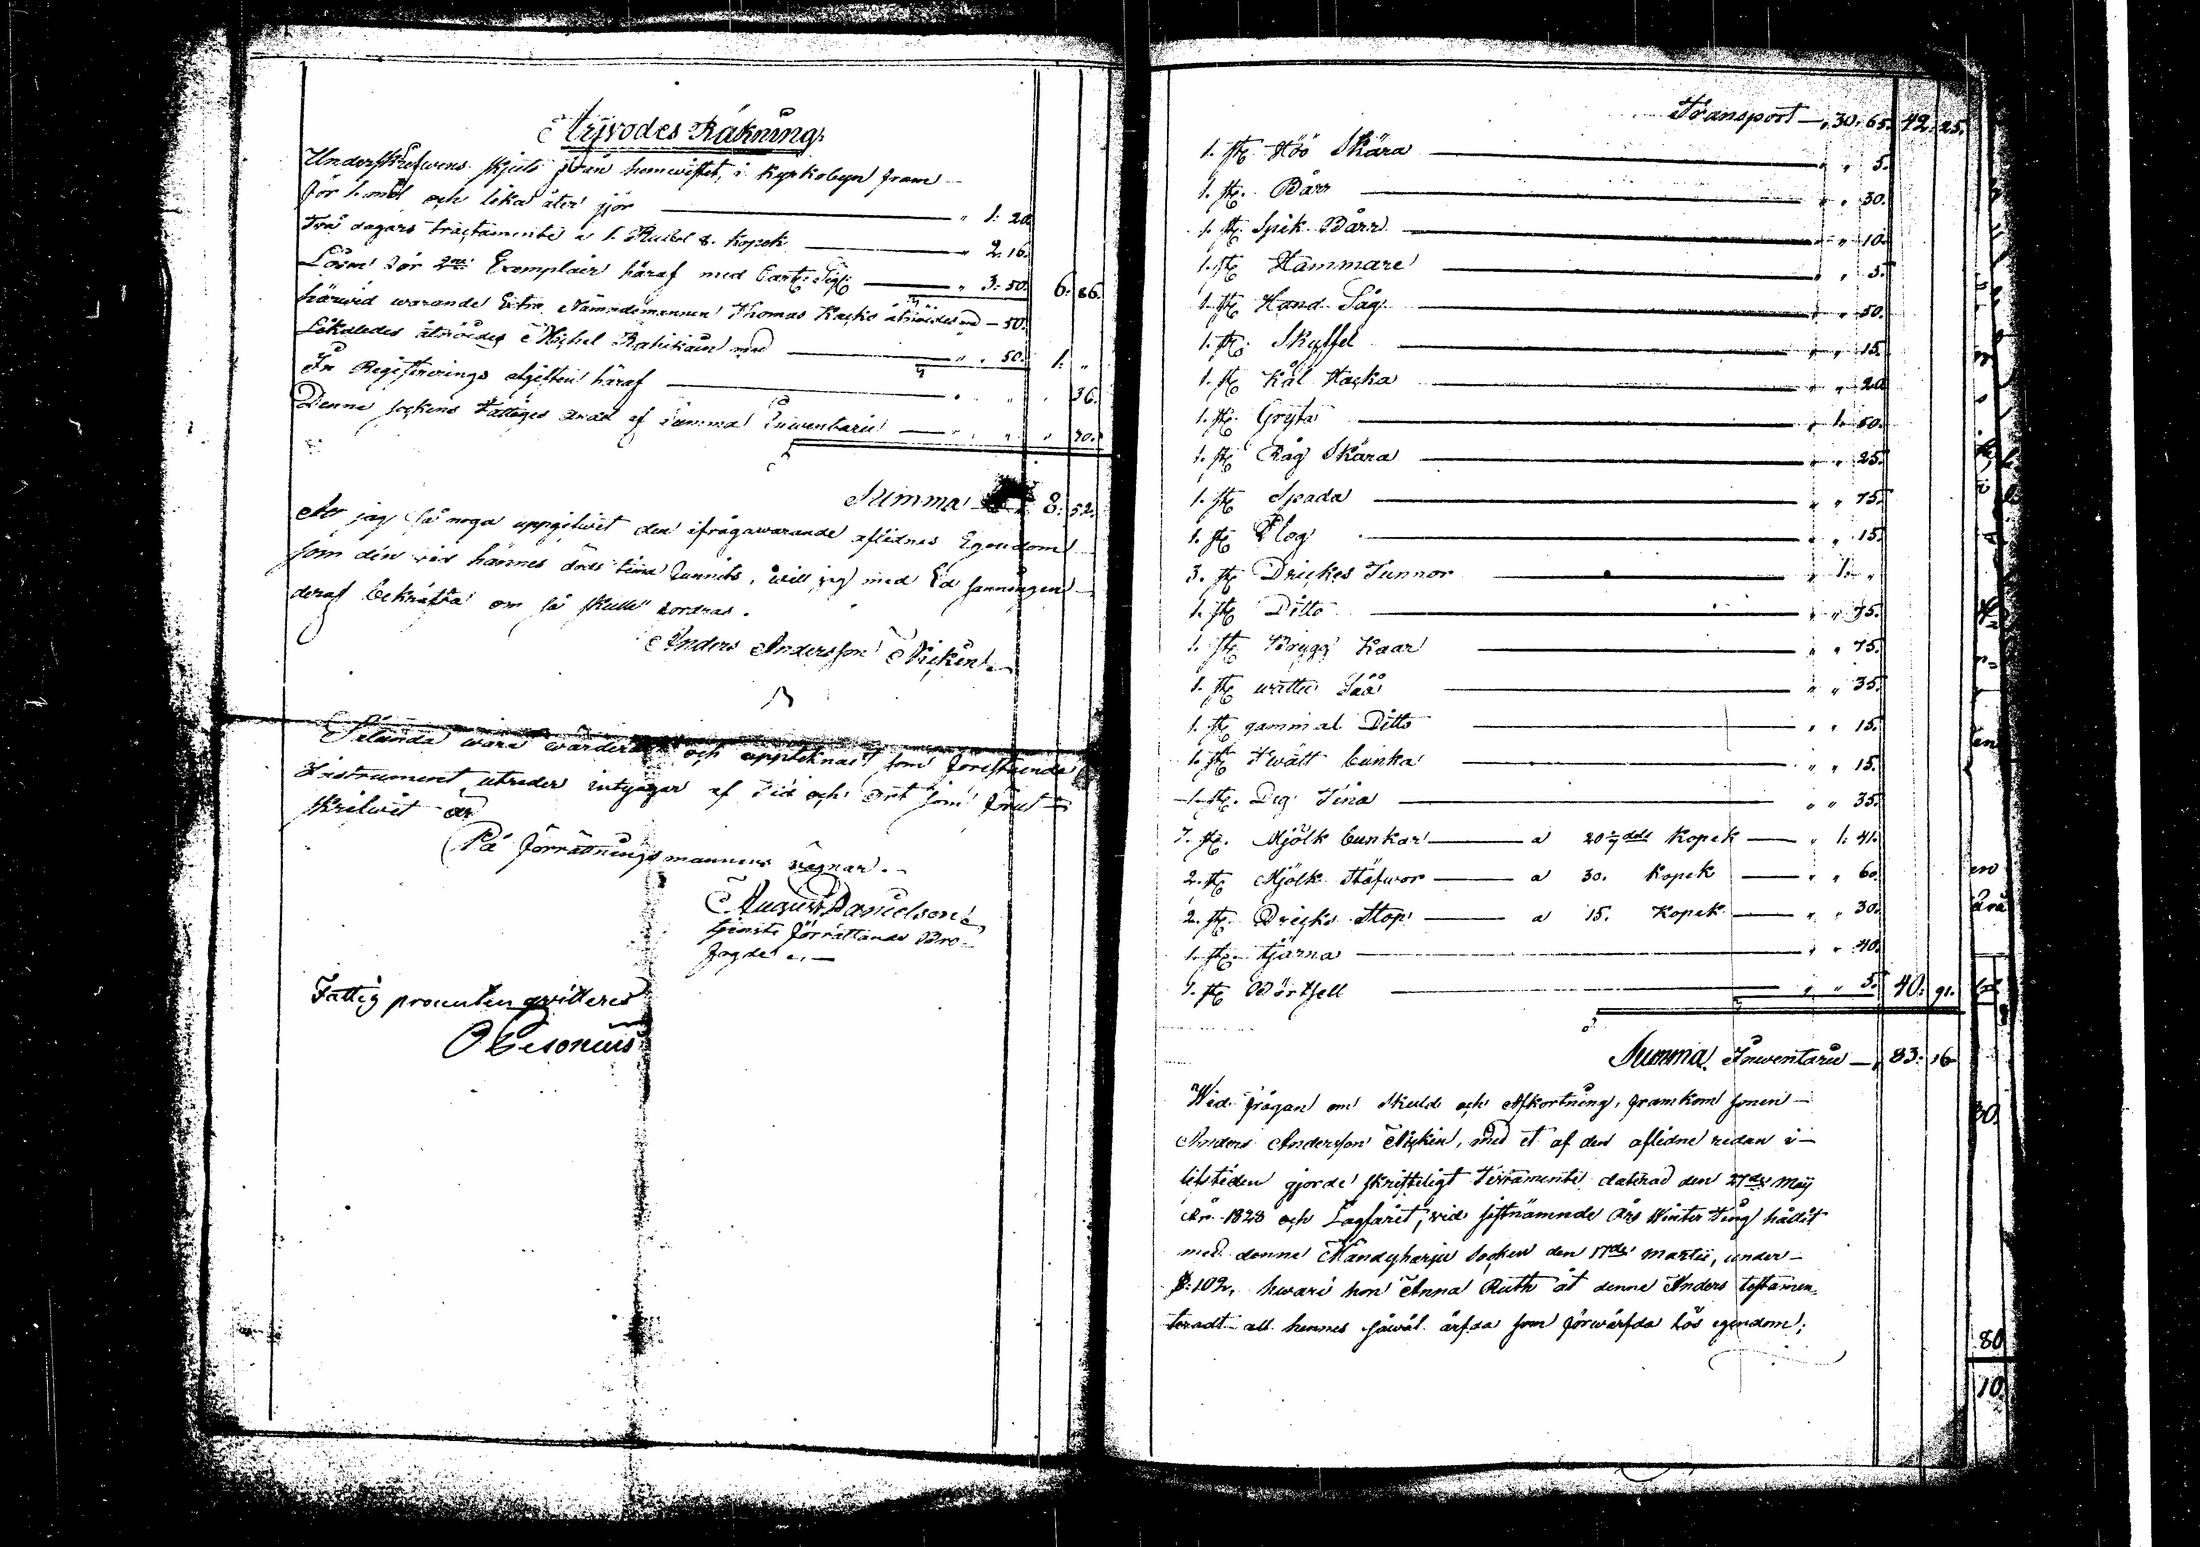 Arfvodes Räkning
Underskrefwens skjuts från hemwistet, i Kyrkobyn fram
för 1. mil och lika åter gör — " 1: 20.
Två dagars tractamente a 1. Rubel 8. Kopek — " 2. 16.
Lösen för 2ne Exemplair häraf med Cart: Sig: — " 3: 50. 6: 86.
härwid warande Extra Nämndemannen Thomas Kacko arfwodes med — 50.
Likaledes arfwodes Michel Rahikain med — " " 50. 1: "
In Registrerings afgiften häraf — " " " 36.
Denne sockens Fattiges andel af Summa Inwentarii — " " " 30.
Summa 8: 52.
At jag så noga uppgifwit den ifrågawarande aflidnes Egendom
som den vid hännes döds timma funnits, will jag med Ed sanningen
deraf bekräfta om så skulle fordras.
Anders Andersson Näckin.
Sålunda wara wärderat och upptecknat som förestående
Instrument utreder intygar af Tid och ort som förut
skrifwit är
På Förrättningsmannens vägnar.
August Danielson
tjenste förrättande Bro
fogde.
Fattig procenten qvitteres
O Cesonius
Transport — " 30: 65. 42. 25.
1. st: Höö Skära — " " 5.
1. st: Bårr — " " 30.
1. st: Spik Bårr — " " 10.
1. st: Hammare — " " 5.
1. st: Hand Såg — " " 50.
1. st: Skyffel — " " 15.
1. st: Kål Hacka — " " 20
1. st: Gryta — " 1. 50.
1. st: Råg Skära — " " 25.
1. st: Spada — " " 75.
1. st: Plog — " " 15.
3. st: Drickes Tunnor — " 1. "
1. st: Ditto — " " 75.
1. st: Brygg Kaar — " " 75.
1. st: wattu Såå — " " 35.
1. st: gammal Ditto — " " 15.
1. st: Twätt bunka — " " 15.
1. st: Deg Tina — " " 35.
7. st: Mjölk bunkar — a 20 1/7 dels Kopek — " 1: 41.
2. st: Mjölk Stäfwor — a 30. Kopek — " " 60.
2. st: Dricks Stop — a 15. Kopek — " " 30.
1. st: tjärna — " " 40.
1. st: — " " 5. 40: 91.
Summa Inwentarii — " 83: 16
Wid frågan om skuld och Afkortning, framkom sonen
Anders Andersson Näckin, med et af den aflidne redan i
lifstiden gjorde skrifteligt Testamente daterad den 27de Maij
År 1828 och Lagfarit, vid sistnämnde Års Winter Ting hållit
med denne Mandyharju Socken den 17de Martii, under
§: 102, hwari hon Anna Ruth åt denne Anders testamen-
teradt all hennes såwäl ärfda som förwärfda lös egendom;
80
10.